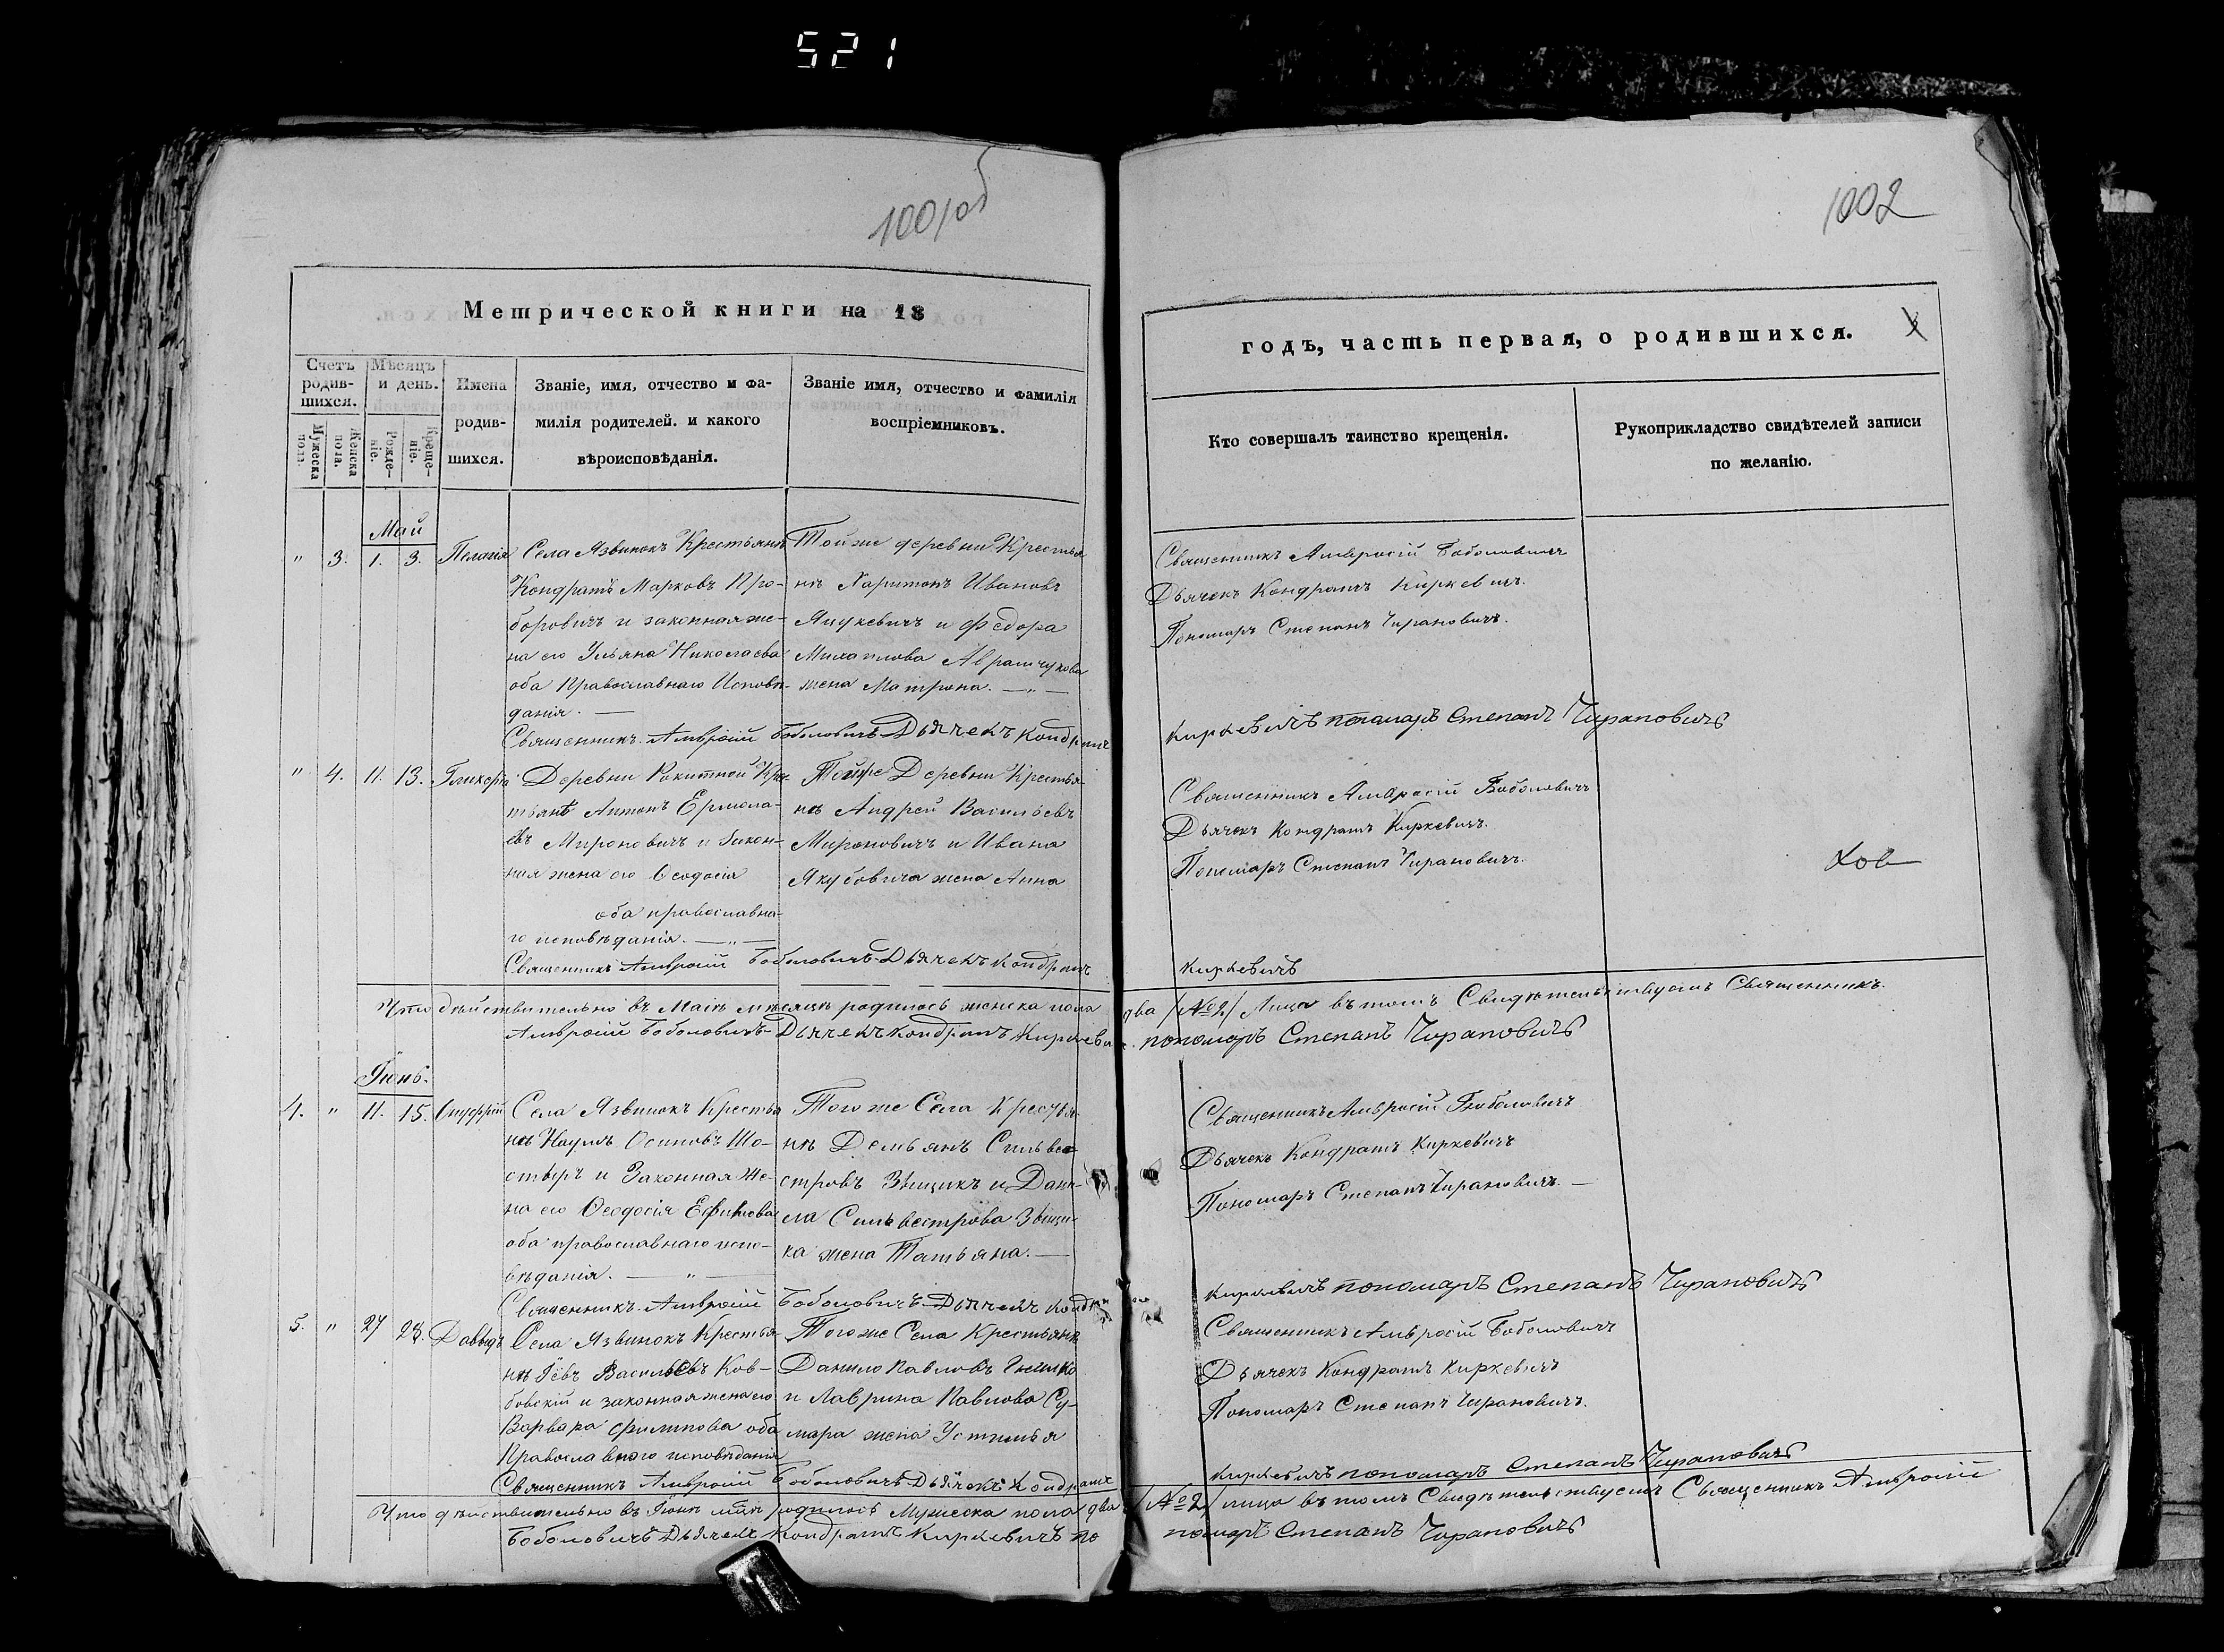 521
1001 об
1002
Метрической книги на 18
годъ, часть первая, о родившихся.
Счетъ родив-шихся.
Мужеска пола.
Женска пола.
Мѣсяцъ и день.
Рожде-ніе.
Креще-ніе.
Имена
родив-
шихся.
Званіе, имя, отчество и фа-
милія родителей. и какого
вѣроисповѣданія.
Званіе имя, отчество и фамилія
воспріемниковъ.
Кто совершалъ таинство крещенія.
Рукоприкладство свидѣтелей записи
по желанію.
Май
" 3. 1. 3. Пелагія
Села Язвинокъ Крестьянъ
Кондратъ Марковъ Про-
боровичъ и законная же-
на его Ульяна Николаева
оба Православнаго Исповѣ-
данія. —
Тойже деревни Крестья
нъ Харитонъ Ивановъ
Янукевичъ и Федора
Михаилова Аврамчукова
жена Матрона. — " —
Священникъ Амвросій Боболовичъ
Дьячекъ Кондратъ Киркевичъ.
Пономаръ Степанъ Чирановичъ.
Священникъ Амвросій Боболовичъ Дьячекъ Кондратъ Киркевичъ пономаръ Степанъ Чирановичъ
" 4. 11. 13. Гликерія
Деревни Рокитной Кре
тьянъ Антонъ Ермола-
евъ Мироновичъ и Закон-
ная жена его Ѳеодосія
оба православна-
го исповѣданія. — " —
Тойже Деревни Крестья-
нъ Андрей Васильевъ
Мироновичъ и Ивана
Якубовича жена Анна
Священникъ Амвросій Боболовичъ
Дьячекъ Кондратъ Киркевичъ.
Пономаръ Степанъ Чирановичъ.
Священникъ Амвросій Боболовичъ Дьячекъ Кондратъ Киркевичъ
Что дѣйствительно въ Маіѣ мѣсяцѣ родилось женска пола два /№2/ Лица въ томъ Свидѣтельствуемъ Священникъ
Амвросій Боболовичъ Дьячекъ Кондратъ Киркевичъ пономаръ Степанъ Чирановичъ
Іюнь.
4. " 11. 15. Онуфрій
Села Язвинокъ Крестья
нъ Наумъ Осиповъ Шо-
стыръ и Законная Же-
на его Ѳеодосія Ефимова
оба православнаго испо-
вѣданія. — " —
Тогоже Села Крестья-
нъ Демьянъ Сильве-
стровъ Зыщикъ и Дани-
ла Сильвестрова Зыщи-
ка жена Татьяна. —
Священникъ Амвросій Боболовичъ
Дьячекъ Кондратъ Киркевичъ
Пономаръ Степанъ Чирановичъ. —
Священникъ Амвросій Боболовичъ Дьячекъ Кондратъ Киркевичъ пономаръ Степанъ Чирановичъ
5. " 27 28. Давыдъ
Села Язвинокъ Крестья
нъ Іевъ Васильевъ Ков-
бовскій и законная жена его
Варвара Филипова оба
Православнаго исповѣданія
Тогоже Села Крестьянъ
Данило Павловъ
и Лаврина Павлова Су-
мара жена Устинья
Священникъ Амвросій Боболовичъ
Дьячекъ Кондратъ Киркевичъ
Пономаръ Степанъ Чирановичъ.
Священникъ Амвросій Боболовичъ Дьячокъ Кондратъ Киркевичъ пономаръ Степанъ Чирановичъ
Что дѣйствительно въ Іюнѣ мѣц родилось Мужеска пола два /№2/ лица въ томъ Свидѣтельствуемъ Священникъ Амвросій
Боболовичъ Дьячекъ Кондратъ Киркевичъ по номаръ Степанъ Чирановичъ